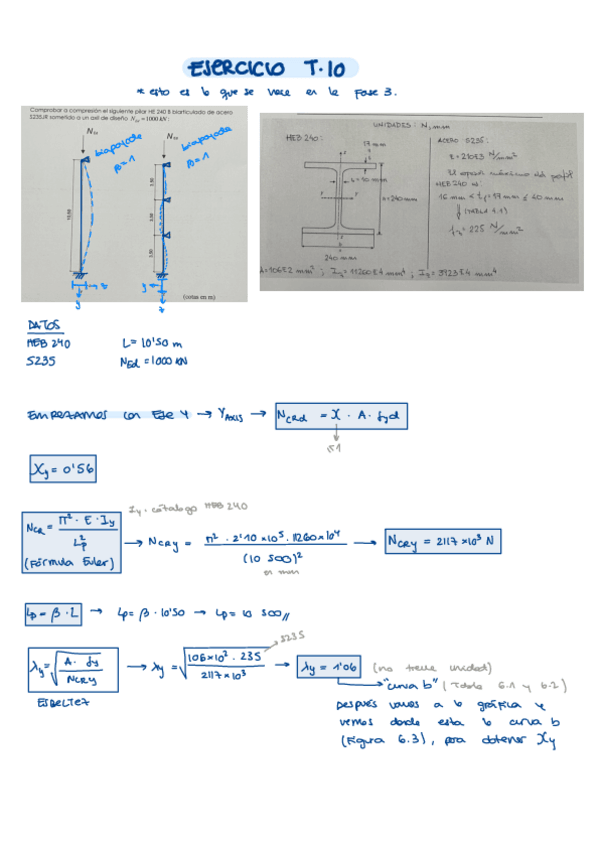 EJERCICIO T.10
* esto es lo que se hace en la Fase 3.
Comprobar a compresión el siguiente pilar HE 240 B biarticulado de acero
S235JR sometido a un axil de diseño N_Ed = 1000 kN:
N_Ed
biapoyada
β=1
10,50
y
N_Ed
biapoyada
β=1
3,50
3,50
3,50
z
(cotas en m)
UNIDADES: N, mm
HEB 240:
17 mm
t = 10 mm
h = 240 mm
240 mm
A=106E2 mm²; Iy=11260E4 mm⁴; Iz=3923E4 mm⁴
ACERO S235:
E=210E3 N/mm²
El espesor máximo del perfil
HEB 240 es:
16 mm < tf=17 mm ≤ 40 mm
(TABLA 4.1)
fy=225 N/mm²
DATOS
HEB 240 L= 10'50 m
S235 NEd = 1000 KN
EMPEZAMOS con EJE Y → YAXIS → NCRd = X · A · fyd
≤1
Xy = 0'56
Iy. catálogo HEB 240
NCR = π² · E · Iy / Lp² → NCRy = π² · 2'10 ×10⁵ · 11260×10⁴ / (10 500)² → NCRy = 2117 ×10³ N
(Fórmula Euler)
en mm
Lp = β · L → Lp = β · 10'50 → Lp = 10 500 //
S235
λy = √(A · fy / NCRy) → λy = √(106×10² · 235 / 2117×10³) → λy = 1'06 (no tiene unidad)
ESBELTEZ
→ "curva b" (Tabla 6.1 y 6.2)
DESPUÉS vamos a la gráfica y
vemos donde esta la curva b
(Figura 6.3), para obtener Xy